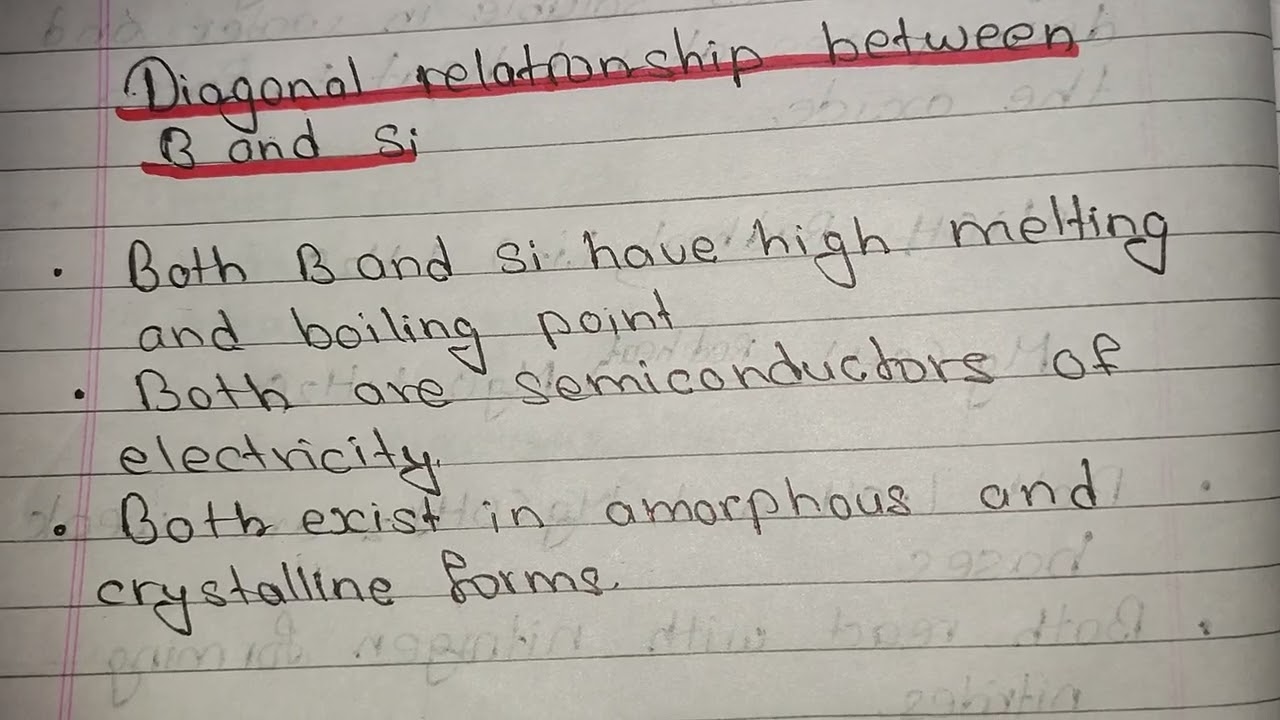 Diagonal relationship between
B and Si
• Both B and si have high melting
and boiling point
• Both are semiconductors of
electricity.
• Both exist in amorphous and
crystalline forms.